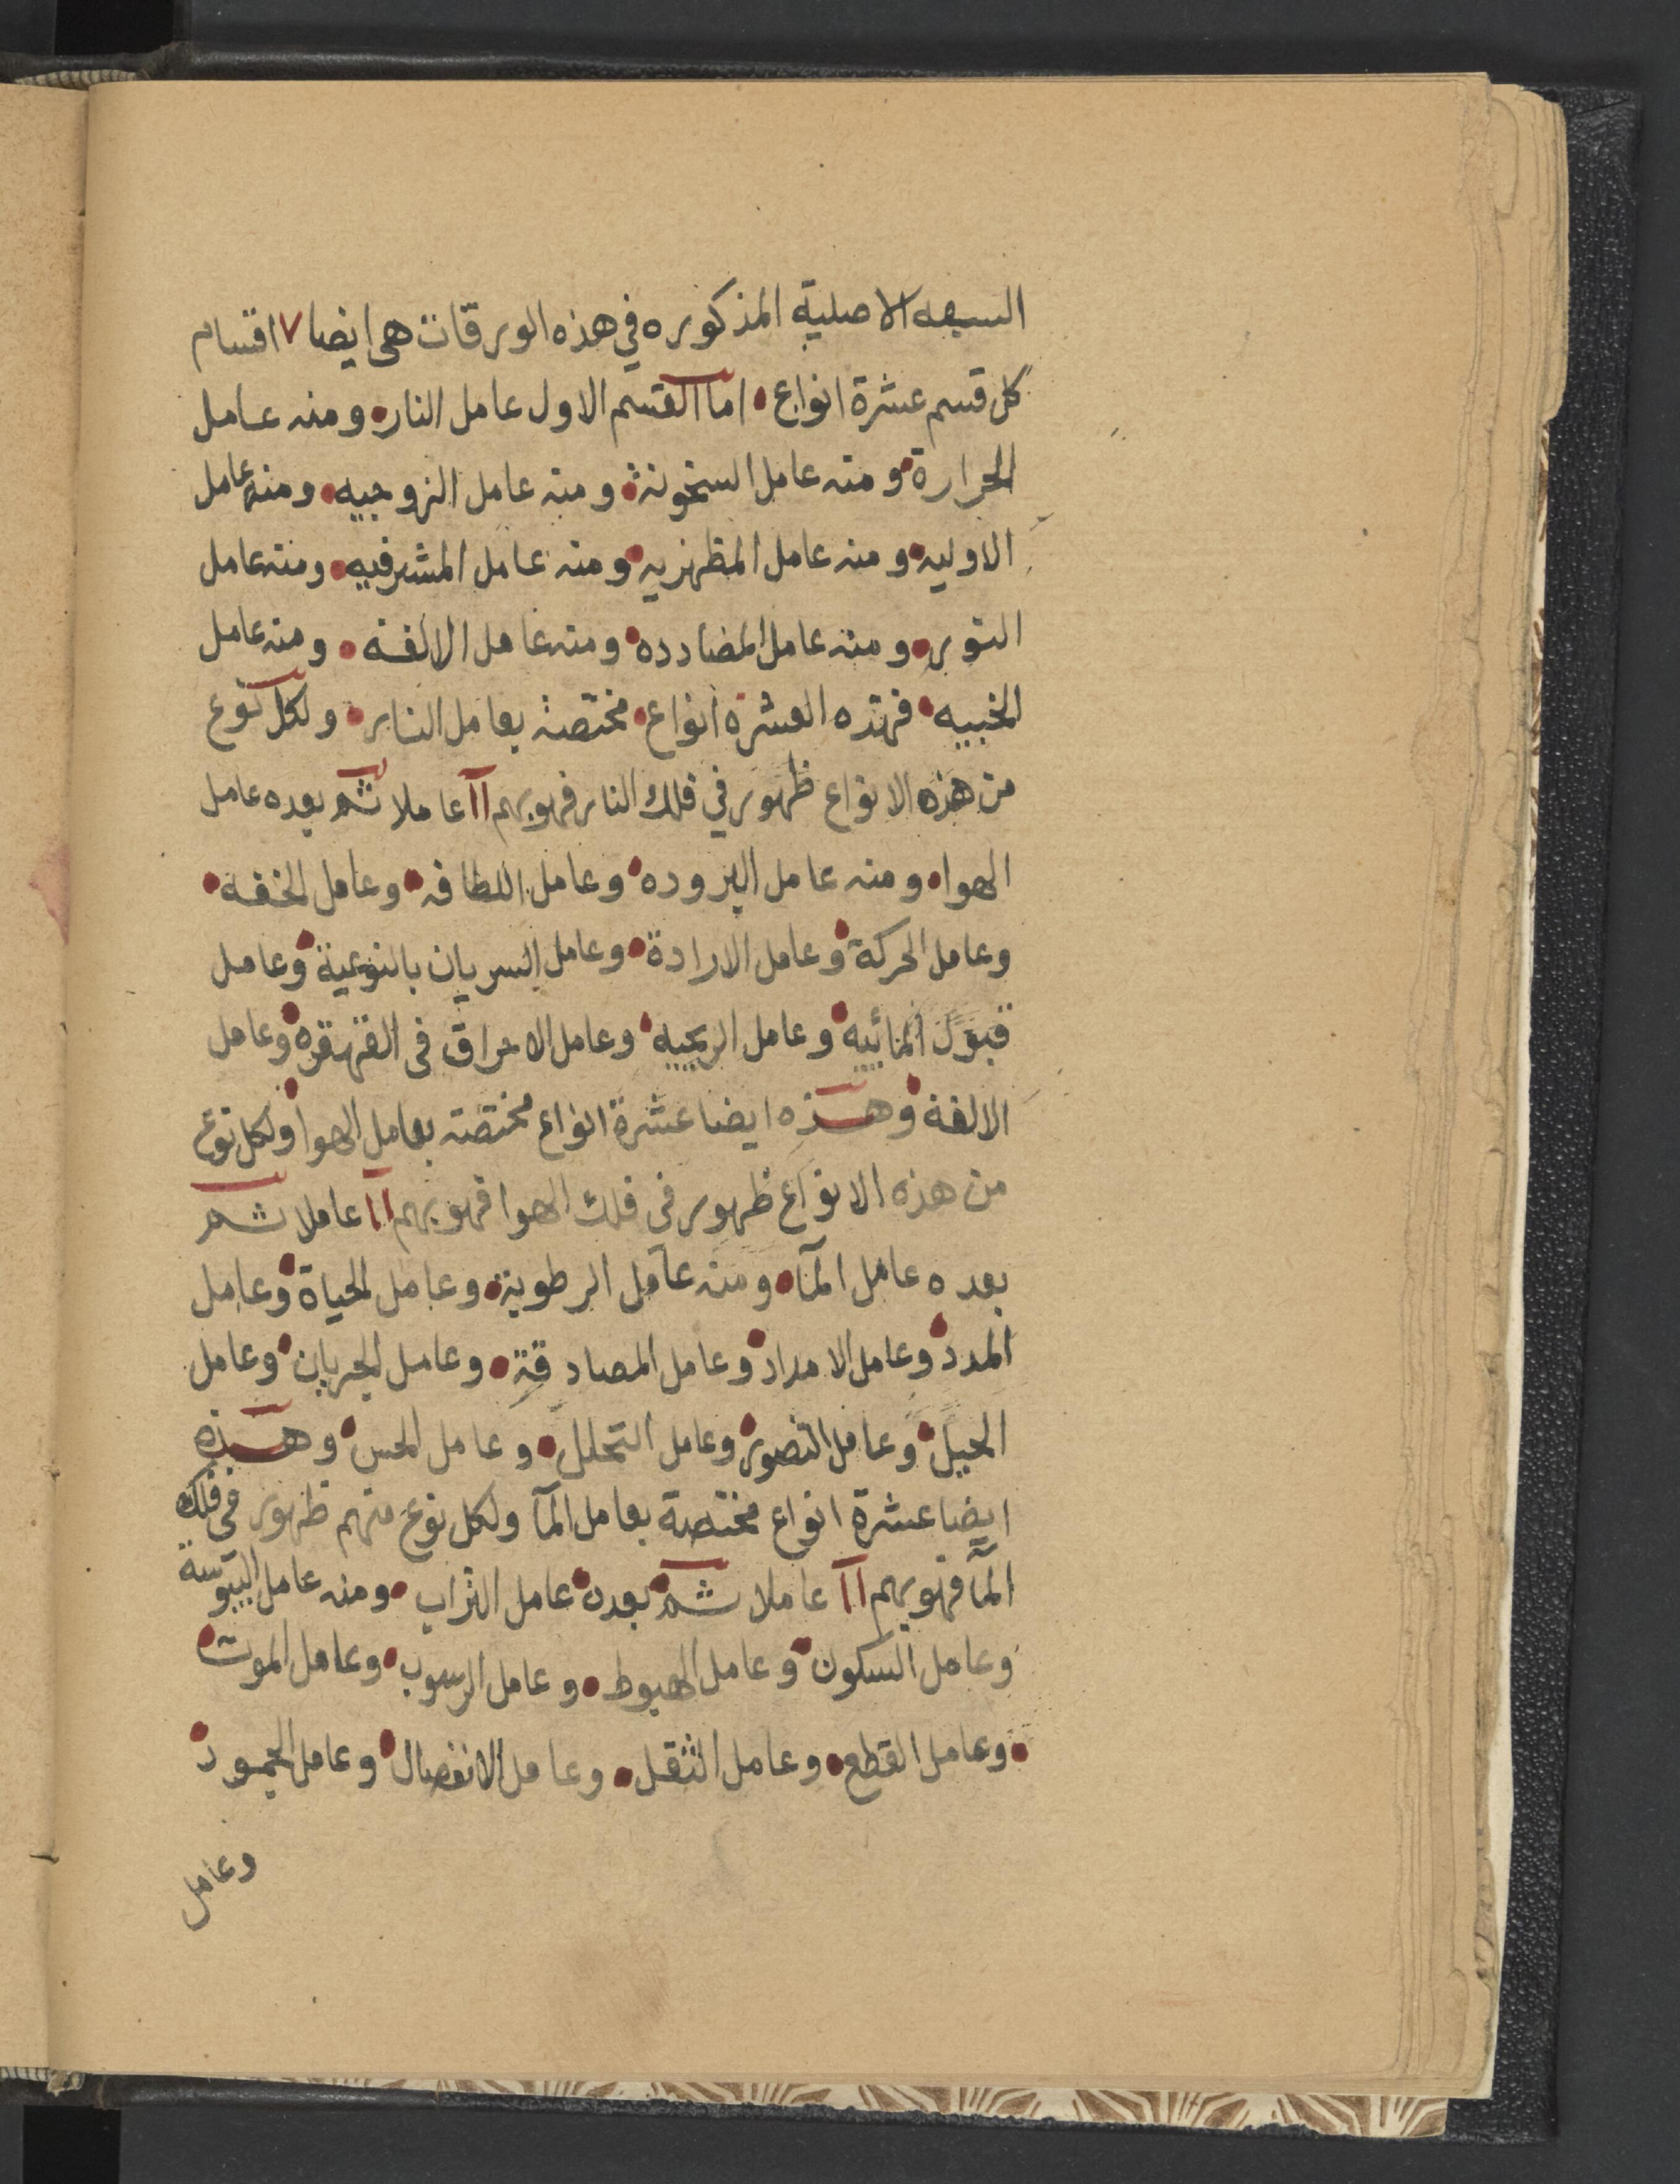 السبعه الاصلية المذكوره في هذه الورقات هى ايضا ٧ اقسام
كل قسم عشرة انواع • اما القسم الاول عامل النار • ومنه عامل
الحرارة • ومنه عامل السخونة • ومنه عامل الزوجيه • ومنه عامل
الاوليه • ومنه عامل المظهريه • ومنه عامل المشرفيه • ومنه عامل
النور • ومنه عامل المضادده • ومنه عامل الالفه • ومنه عامل
فهذه العشرة انواع • مختصة بعامل النار • ولكل نوع
من هذه الانواع ظهور في فلك النار فهو بهم ١١ عاملا ثم بعده عامل
الهوا • ومنه عامل البروده • وعامل اللطافه • وعامل الخفه •
وعامل الحركة • وعامل الارادة • وعامل السريان بالنوعية • وعامل
قبول المائيه • وعامل الريحيه • وعامل الاحراق فى القهقره • وعامل
الالفة • وهذه ايضا عشرة انواع مختصة بعامل الهوا • ولكل نوع
من هذه الانواع ظهور فى فلك الهوا فهو بهم ١١ عاملا ثم
بعده عامل المآ • ومنه عامل الرطوبة • وعامل الحياة • وعامل
المدد • وعامل الامداد • وعامل المصادقة • وعامل الجريان • وعامل
الميل • وعامل التصوير • وعامل التحلل • وعامل الحس • وهذه
ايضا عشرة انواع مختصة بعامل المآ ولكل نوع منهم ظهور فى فلك
المآ فهو بهم ١١ عاملا ثم • بعده • عامل التراب • ومنه عامل اليبوسة
وعامل السكون • وعامل الهبوط • وعامل الرسوب • وعامل الموت •
• وعامل القطع • وعامل الثقل • وعامل الانفصال • وعامل الجمود •
وعامل